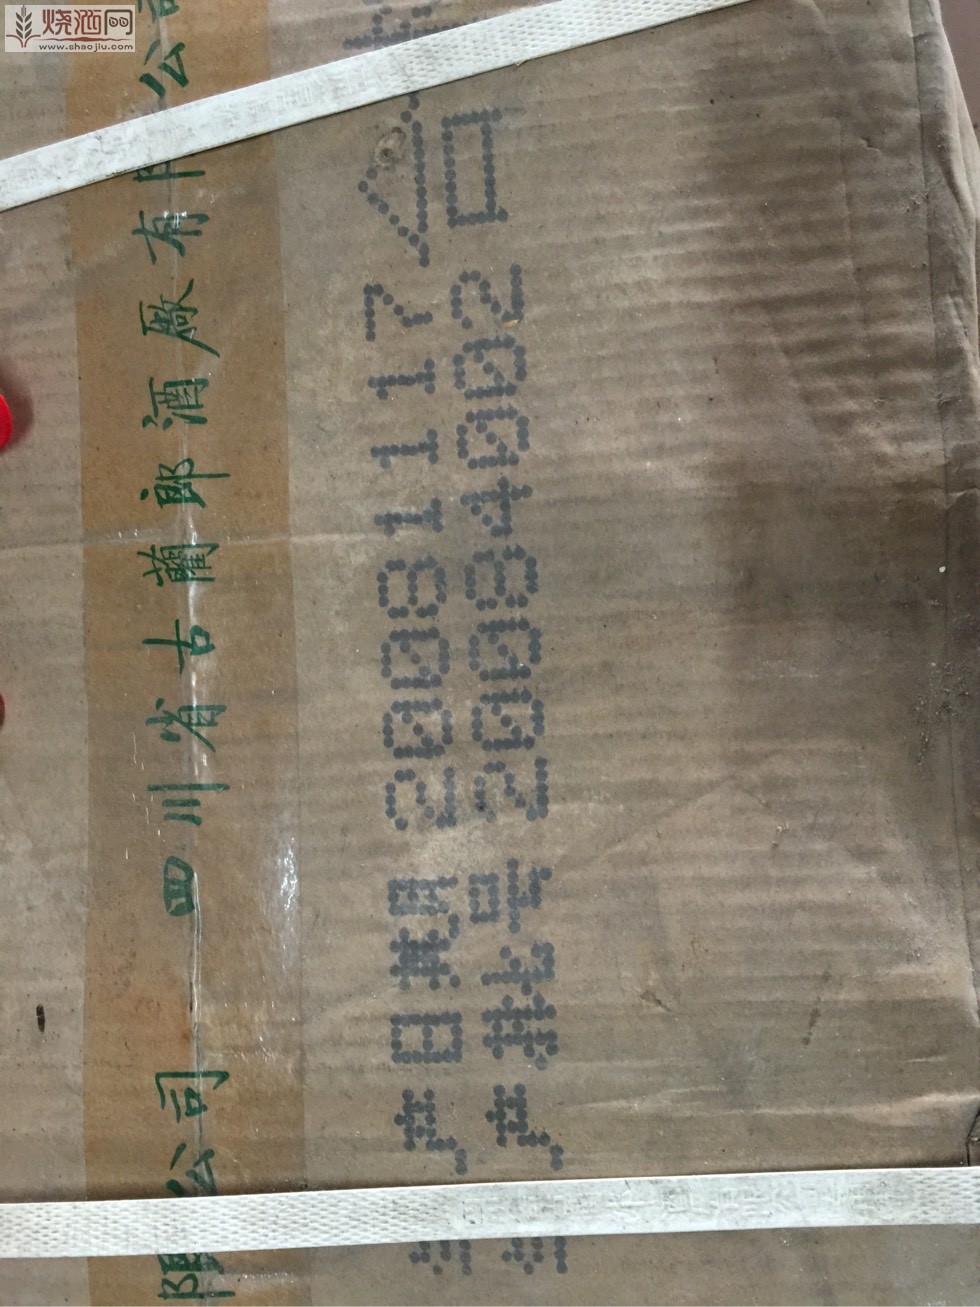 烧酒网
www.shaojiu.com
限公司 四川省古藺郎酒厰有限公司
生产日期 20081117 合
生产批号 20084002